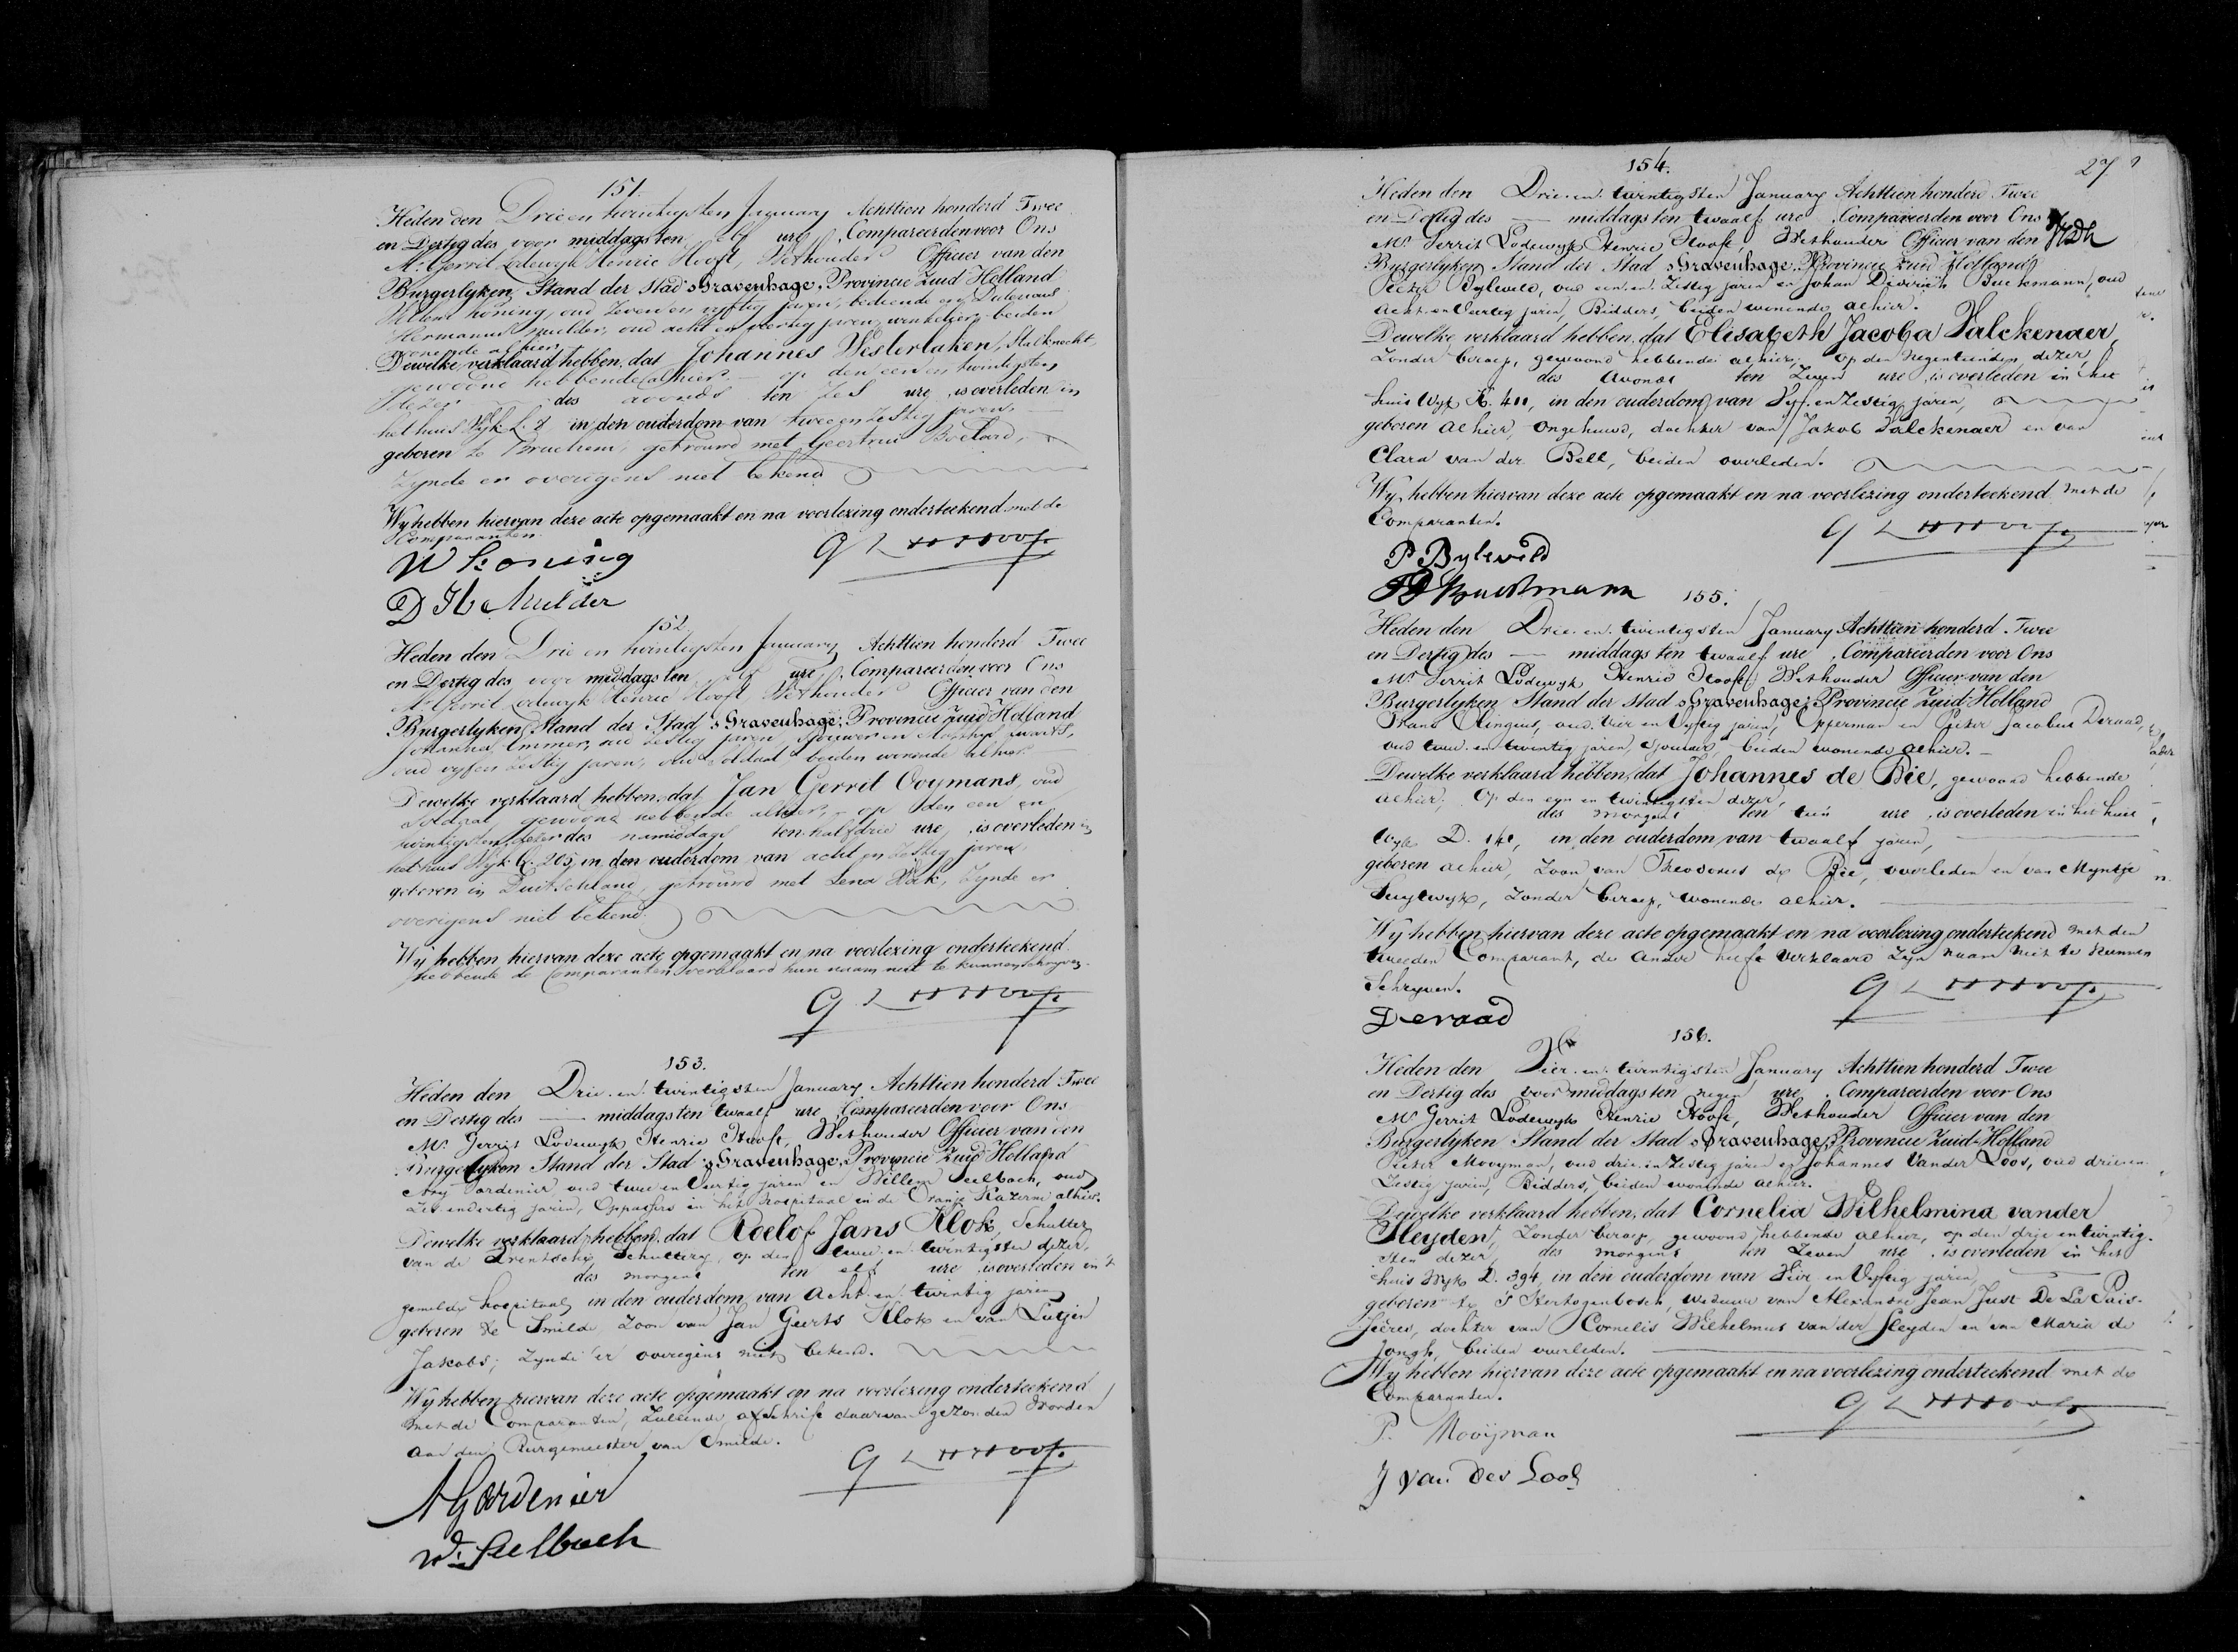 151.
Heden den Drie en twintigsten January Achttien honderd Twee
en Dertig des voor middags ten elf ure, Compareerden voor Ons
Mr. Gerrit Lodewyk Henric Hooft, Wethouder Officier van den
Burgerlyken Stand der Stad 's Gravenhage, Provincie Zuid Holland
Willem Koning, oud Zeven en vyftig jaren, bediende en Diderius
Hermanus Mulder, oud acht en veertig jaren, winkelier, beiden
wonende alhier,
Dewelke verklaard hebben, dat Johannes Westerlaken, Stalknecht,
gewoond hebbende alhier, op den een en twintigsten
dezer des avonds ten Zes ure, is overleden in
het huis Wyk L. in den ouderdom van twee en Zestig jaren,
geboren te Bruchem, getrouwd met Geertrui
Zynde er overigens niet bekend
Wy hebben hiervan deze acte opgemaakt en na voorlezing onderteekend met de
Comparanten.
W Koning
D H Mulder
152.
Heden den Drie en twintigsten January Achttien honderd Twee
en Dertig des voor middags ten elf ure, Compareerden voor Ons
Mr. Gerrit Lodewyk Henric Hooft, Wethouder Officier van den
Burgerlyken Stand der Stad 's Gravenhage, Provincie Zuid Holland
Johannes Emmer, oud Zestig jaren, Sjouwer en Swarts,
oud vyf en Zestig jaren, oud Soldaat beiden wonende alhier
Dewelke verklaard hebben, dat Jan Gerrit Ooymans, oud
Soldaat gewoond hebbende alhier, op den een en
twintigsten dezer des namiddags ten half drie ure, is overleden in
het huis Wyk G. 205, in den ouderdom van acht en Zestig jaren
geboren in Duitschland, getrouwd met Lena Hak, Zynde er
overigens niet bekend.
Wy hebben hiervan deze acte opgemaakt en na voorlezing onderteekend
hebbende de Comparanten verklaard hun naam niet te kunnen schryven.
153.
Heden den Drie en twintigsten January Achttien honderd Twee
en Dertig des — middags ten twaalf ure Compareerden voor Ons
Mr. Gerrit Lodewyk Henric Hooft, Wethouder Officier van den
Burgerlyken Stand der Stad 's Gravenhage, Provincie Zuid Holland
Ary Gordenier oud twee en Veertig jaren en Willem Seelbach, oud
Zes en dertig jaren, Oppassers in het hospitaal in de Oranje Kazerne alhier.
Dewelke verklaard hebben, dat Roelof Jans Klok, Schutter
van de Drentsche Schuttery, op den twee en twintigsten dezer,
des morgens ten elf ure is overleden in 't
gemelde hospitaal, in den ouderdom van Acht en twintig jaren
geboren te Smilde, Zoon van Jan Geerts Klok en van Lutjen
Jakobs; Zynde er overigens niets bekend.
Wy hebben hiervan deze acte opgemaakt en na voorlezing onderteekend
met de Comparanten, Zullende afschrift daarvan gezonden Worden
aan den Burgemeester van Smilde.
A Gordenier
W. Seelbach
27
154.
Heden den Drie en twintigsten January Achttien honderd Twee
en Dertig des — middags ten twaalf ure, Compareerden voor Ons
Mr. Gerrit Lodewyk Henric Hooft, Wethouder Officier van den
Burgerlyken Stand der Stad 's Gravenhage, Provincie Zuid Holland
Pieter Byleveld, oud een en Zestig jaren en Johan Diederich Buckmann, oud
Acht en Veertig jaren, Bidders, beiden wonende alhier.
Dewelke verklaard hebben, dat Elisabeth Jacoba Valckenaer,
Zonder beroep, gewoond hebbende alhier, op den Negentienden dezer,
des Avonds ten Zeven ure, is overleden in het
huis Wyk K. 411, in den ouderdom van Vyf en Zestig jaren,
geboren alhier, Ongehuwd, dochter van Jakob Valckenaer en van
Clara van der Bell, beiden overleden.
Wy hebben hiervan deze acte opgemaakt en na voorlezing onderteekend met de
Comparanten.
P Byleveld
JD Buckmann
155.
Heden den Drie en twintigsten January Achttien honderd Twee
en Dertig des — middags ten twaalf ure, Compareerden voor Ons
Mr. Gerrit Lodewyk Henric Hooft, Wethouder Officier van den
Burgerlyken Stand der Stad 's Gravenhage, Provincie Zuid-Holland
Frans Olingius, oud vier en Vyftig jaren, Opperman en Pieter Jacobus Deraad,
oud twee en twintig jaren, Sjouwer, beiden wonende alhier.
Dewelke verklaard hebben, dat Johannes de Bie, gewoond hebbende
alhier, Op den een en twintigsten dezer,
des morgens ten tien ure, is overleden in het huis
Wyk D. 142, in den ouderdom van twaalf jaren,
geboren alhier, Zoon van Theodorus de Bie, overleden en van Myntje
Suylwyk, Zonder beroep, wonende alhier.
Wy hebben hiervan deze acte opgemaakt en na voorlezing onderteekend met den
tweeden Comparant, de Ander heeft verklaard Zyn naam niet te kunnen
Schryven.
Deraad
156.
Heden den Vier en twintigsten January Achttien honderd Twee
en Dertig des voor middags ten negen ure, Compareerden voor Ons
Mr Gerrit Lodewyk Henric Hooft, Wethouder Officier van den
Burgerlyken Stand der Stad 's Gravenhage, Provincie Zuid-Holland
Pieter Mooyman, oud drie en Zestig jaren en Johannes Vander Loos, oud drie en
Zestig jaren, Bidders, beiden wonende alhier.
Dewelke verklaard hebben, dat Cornelia Wilhelmina vander
Sleyden, Zonder beroep, gewoond hebbende alhier, op den drie en twintig-
sten dezer, des morgens ten Zeven ure, is overleden in het
huis Wyk D. 394, in den ouderdom van Vier en Vyftig jaren,
geboren te 's Hertogenbosch, Weduwe van Alexandre Jean Just De La Sais-
sières, dochter van Cornelis Wilhelmus van der Sleyden en van Maria de
Jongh, beiden overleden.
Wy hebben hiervan deze acte opgemaakt en na voorlezing onderteekend met de
Comparanten.
P. Mooÿman
J van der Loos